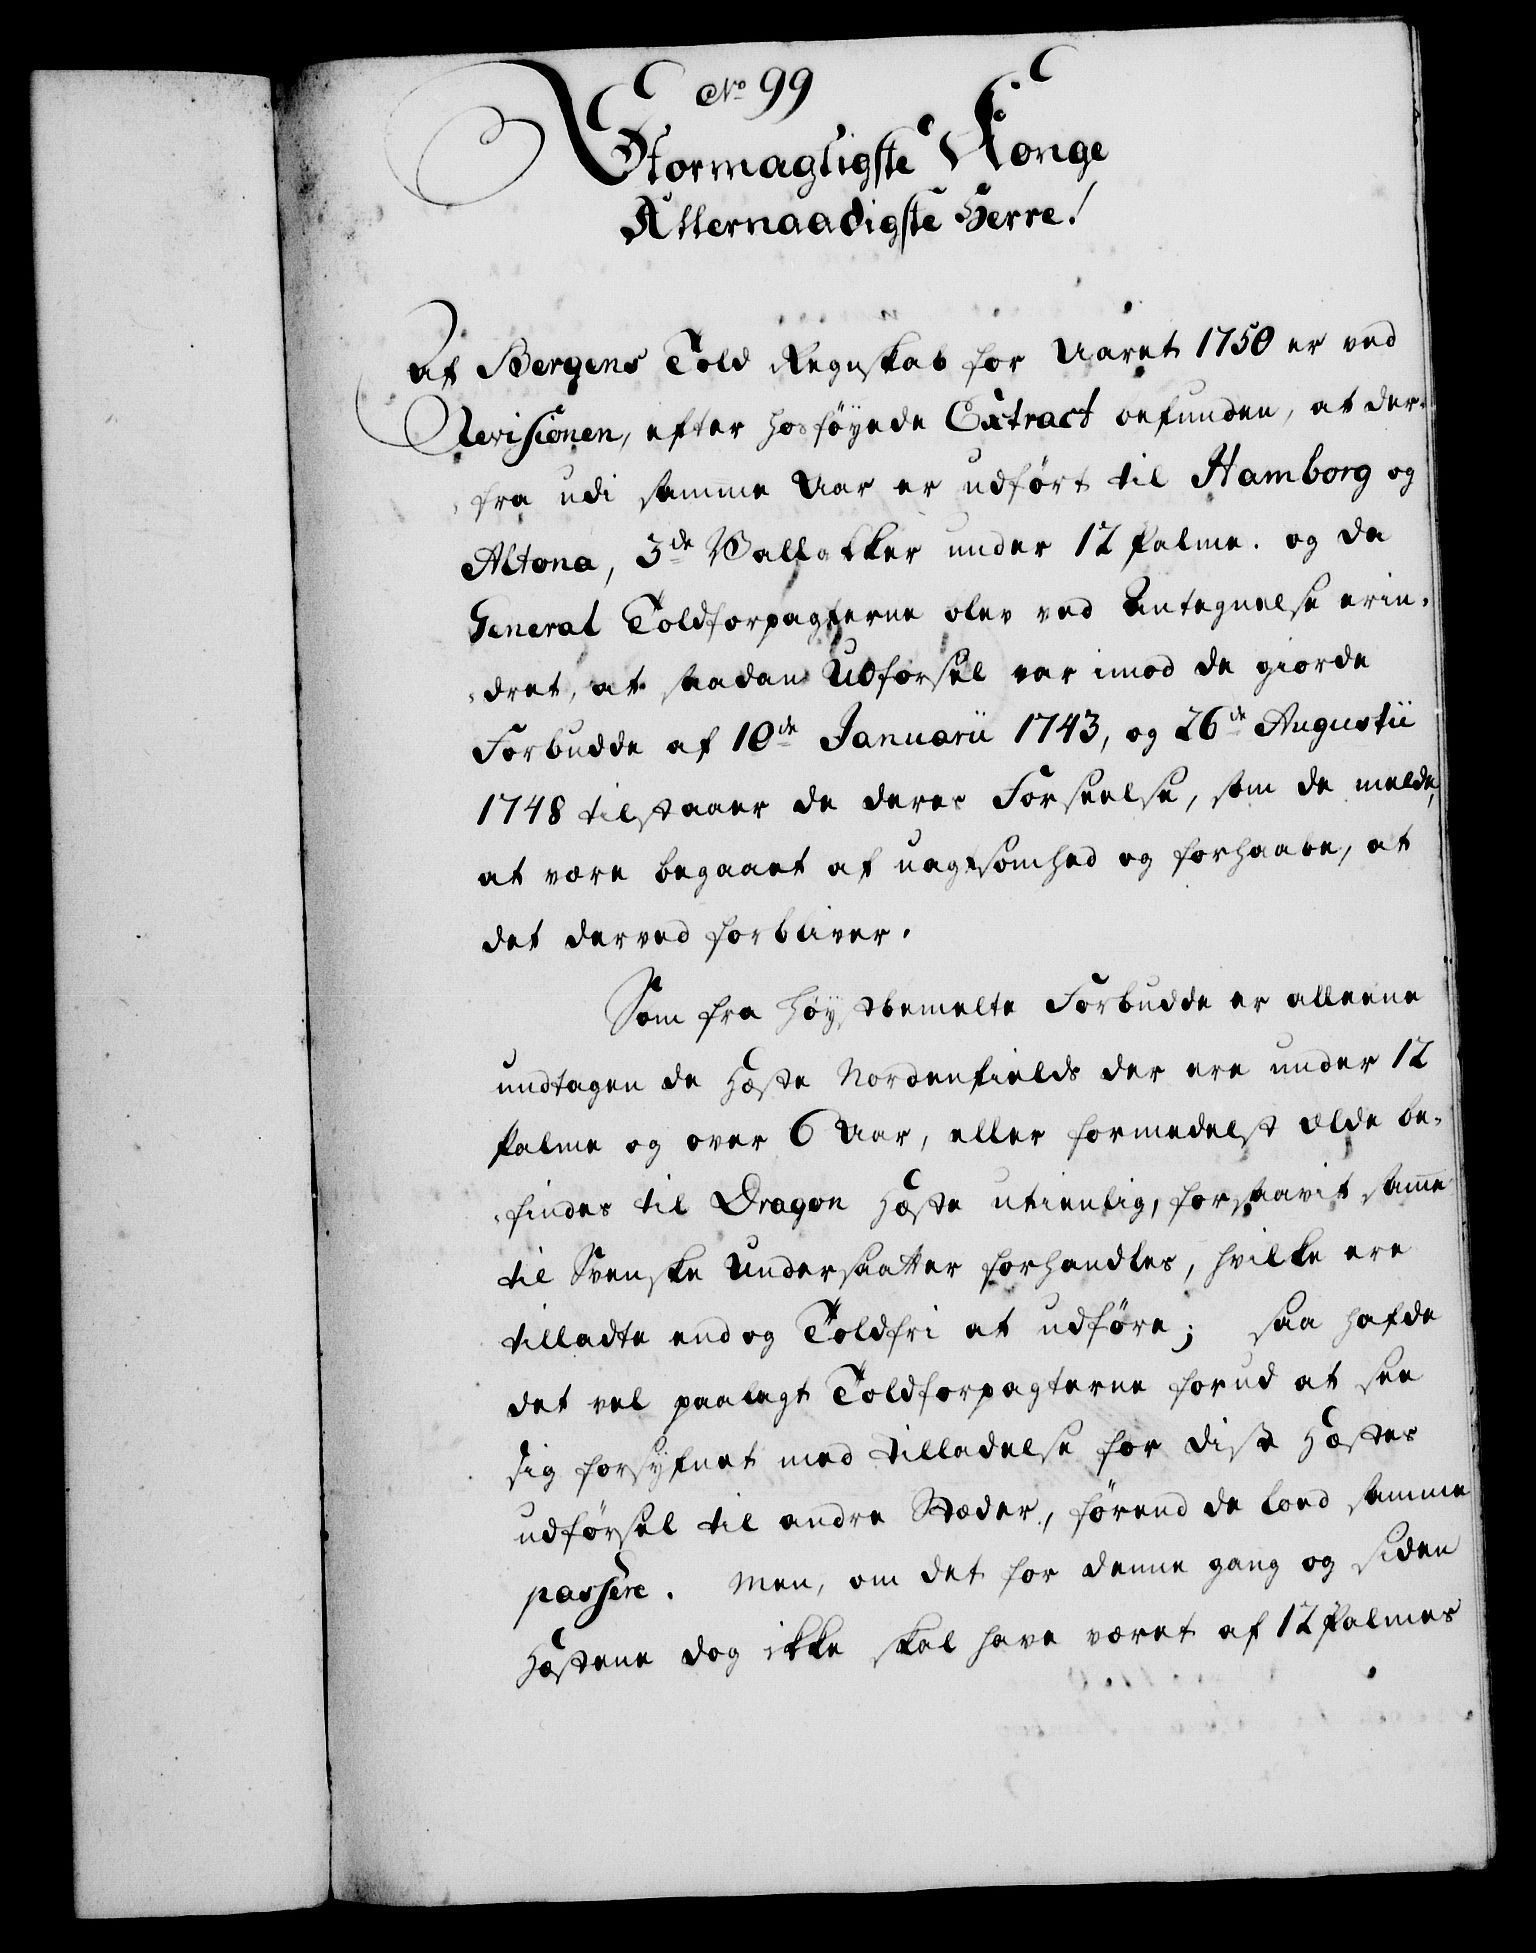 No 99
Stormægtigste Konge
Allernaadigste Herre!
Af Bergens Told Regnskab for Aaret 1750 er ved
Revisionen, efter hosföyede Extract befunden, at der-
fra udi samme Aar er udført til Hamborg og
Altona, 3de Vallakker under 12 Palme. og da
General Toldforpagterne blev ved Antegnelse erin-
dret, at saadan Udforsel var imod de giorde
Forbudde af 10de Januarii 1743, og 26de Augustii
1748 tilstaaer de deres Forseelse, som de melde,
at være begaaet af uagtsomhed og forhaabe, at
det derved forbliver.
Som fra höystbemelte Forbudde er alleene
undtagen de Heste Nordenfields der ere under 12
Palme og over 6 Aar, eller formedelst Ælde be-
findes til Dragon Heste utienlig, forsaavit samme
til Svenske Undersaatter forhandles, hvilke ere
tilladte endog Toldfri at udföre; saa hafde
det vel paalagt Toldforpagterne forud at see
sig forsyfnet med tilladelse for disse Hestes
udförsel til andre Stæder, förend de lood samme
passere. Men, om det for denne gang og siden
Hestene dog ikke skal have været af 12 Palmes